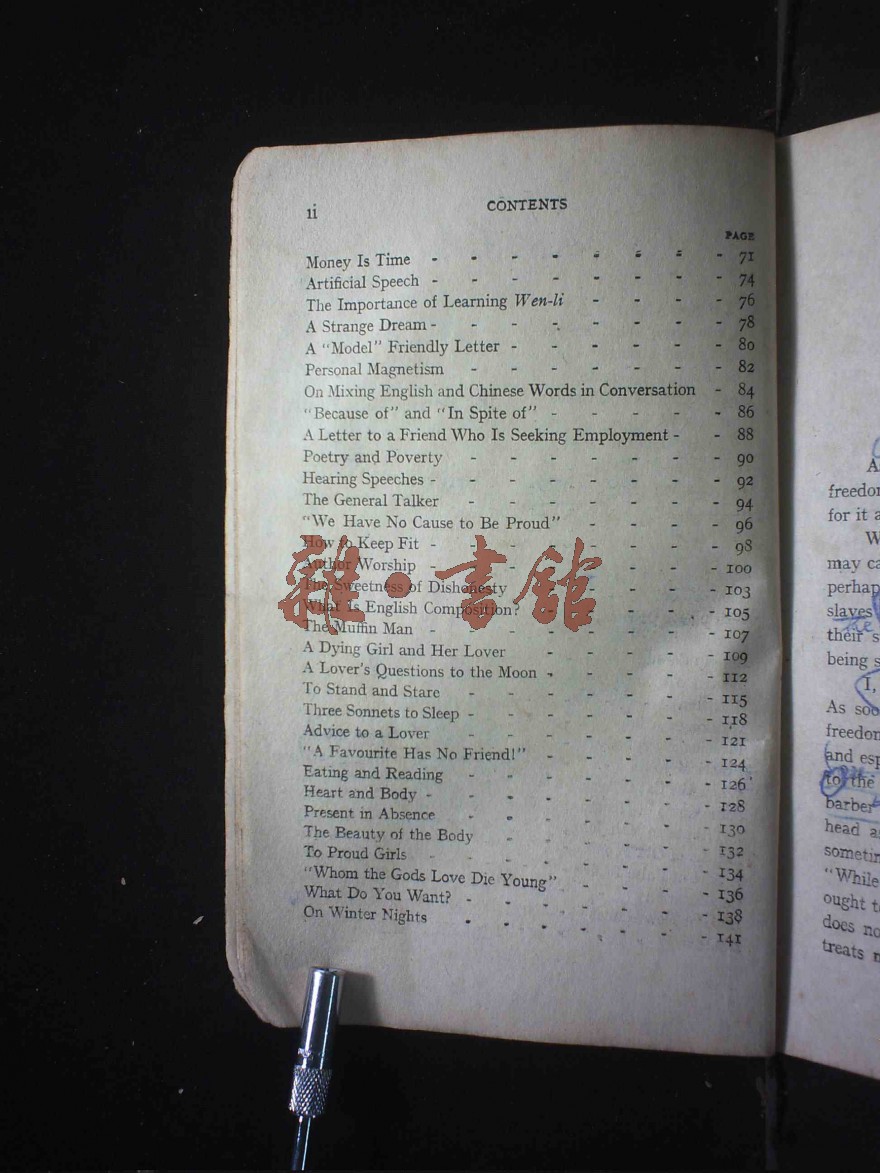 ii CONTENTS
PAGE
Money Is Time - - - - - - - - 71
Artificial Speech - - - - - - - - 74
The Importance of Learning Wen-li - - - - 76
A Strange Dream - - - - - - - - 78
A "Model" Friendly Letter - - - - - - 80
Personal Magnetism - - - - - - - 82
On Mixing English and Chinese Words in Conversation - 84
"Because of" and "In Spite of" - - - - - 86
A Letter to a Friend Who Is Seeking Employment - - 88
Poetry and Poverty - - - - - - - 90
Hearing Speeches - - - - - - - - 92
The General Talker - - - - - - - 94
"We Have No Cause to Be Proud" - - - - 96
How to Keep Fit - - - - - - - - 98
Author Worship - - - - - - - - 100
The Sweetness of Dishonesty - - - - - 103
What is English Composition? - - - - - 105
The Muffin Man - - - - - - - - 107
A Dying Girl and Her Lover - - - - - 109
A Lover's Questions to the Moon - - - - - 112
To Stand and Stare - - - - - - - 115
Three Sonnets to Sleep - - - - - - - 118
Advice to a Lover - - - - - - - 121
"A Favourite Has No Friend!" - - - - - 124
Eating and Reading - - - - - - - 126
Heart and Body - - - - - - - - 128
Present in Absence - - - - - - - 130
The Beauty of the Body - - - - - - 132
To Proud Girls - - - - - - - - 134
"Whom the Gods Love Die Young" - - - - 136
What Do You Want? - - - - - - - 138
On Winter Nights - - - - - - - 141
雜·書館
for it a
may ca
perhap
slaves
the
their s
being s
I,
As soo
freedom
and esp
to the
barber
head a
sometim
"While
ought t
does no
treats m